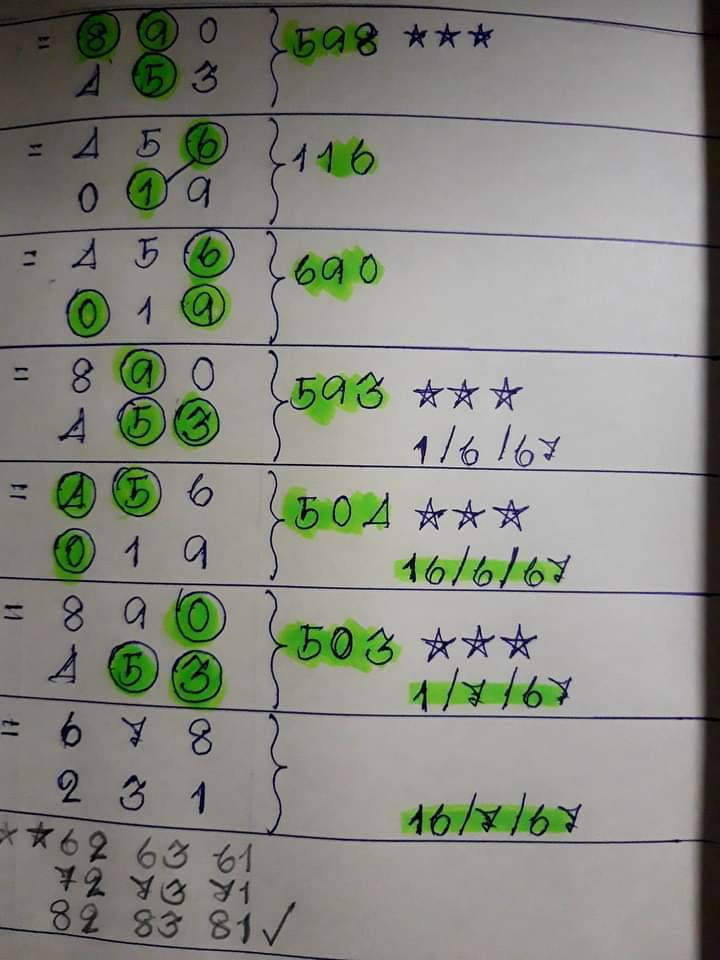 = 8 9 0 } 598 ☆☆☆
4 5 3
= 4 5 6 } 116
0 1 9
= 4 5 6 } 690
0 1 9
= 8 9 0 } 593 ☆☆☆
4 5 3 1/6/67
= 4 5 6 } 504 ☆☆☆
0 1 9 16/6/67
= 8 9 0 } 503 ☆☆☆
4 5 3 1/7/67
= 6 7 8 }
2 3 1 16/7/67
☆☆ 62 63 61
72 73 71
82 83 81 ✓